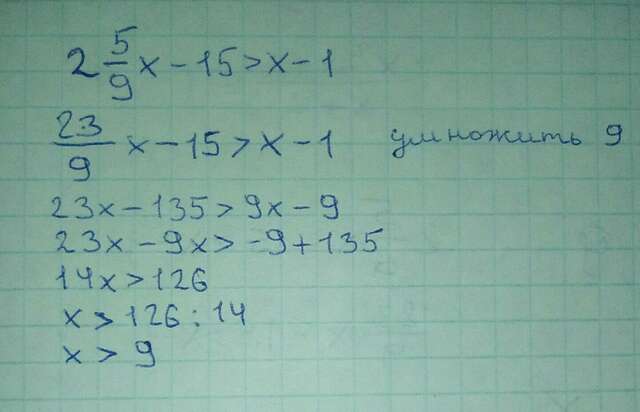 2 5/9 x - 15 > x - 1
23/9 x - 15 > x - 1 умножить 9
23x - 135 > 9x - 9
23x - 9x > -9 + 135
14x > 126
x > 126 : 14
x > 9